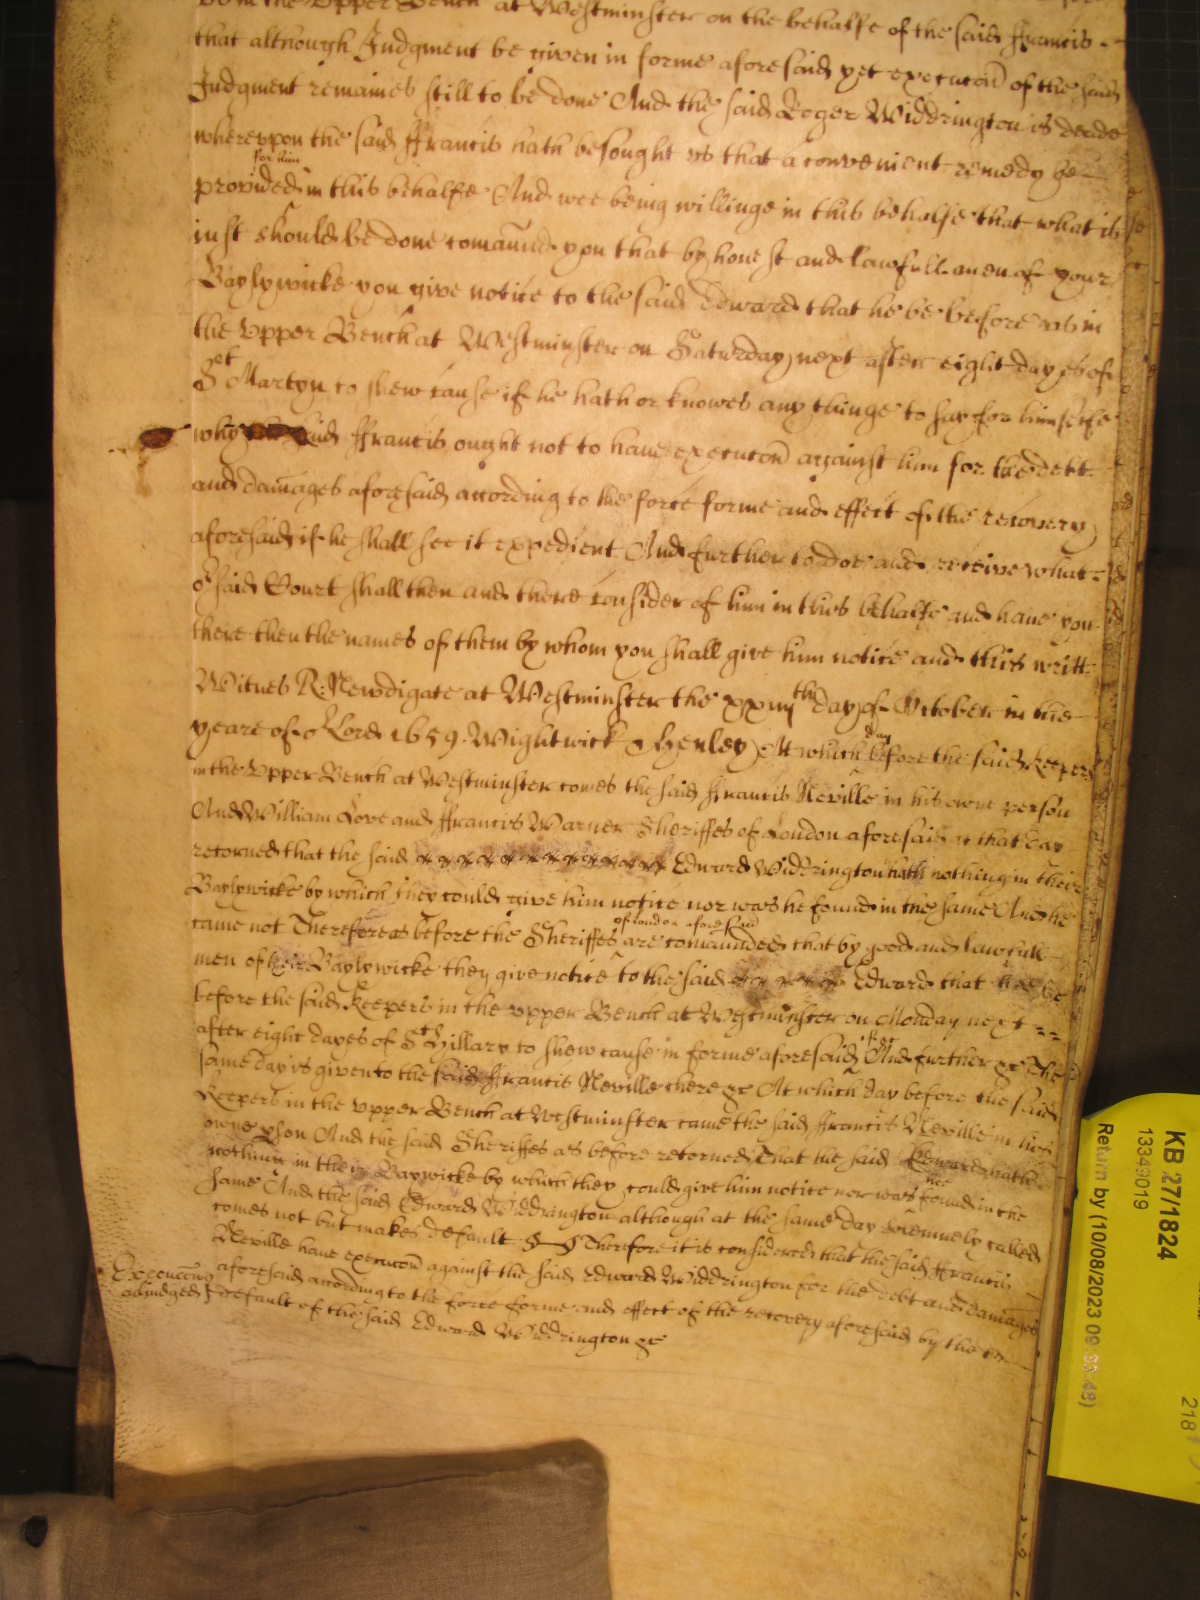 the Upper Bench at Westminster on the behalfe of the said ffrancis
that although Judgment be given in forme aforesaid yet execucon of the said
Judgment remaines still to be done And the said Roger Widdrington is
whereuppon the said ffrancis hath besought us that a convenient remedy be
for him
provided in this behalfe And wee being willinge in this behalfe that what is
just should be done comaund you that by honest and lawfull men of your
Baylywicke you give notice to the said Edward that he be before us in
the Upper Bench at Westminster on Saturday next after eight dayes of
St Martyn to shew cause if he hath or knowes any thinge to say for himselfe
why said ffrancis ought not to have execucon against him for the debt
and damages aforesaid according to the force forme and effect of the recovery
aforesaid if he shall see it expedient And further to doe and receive what
or said Court shall then and there consider of him in this behalfe and have you
there then the names of them by whom you shall give him notice and this writt
Witnes R: Newdigate at Westminster the day of October in the
yeare of or Lord 1659 Wightwick & Henley At which day before the said Keepers
in the Upper Bench at Westminster comes the said ffrancis Neville in his owne person
And William Love and ffrancis Warner Sheriffes of London aforesaid at that day
retorned that the said Edward Widdrington hath nothing in their
Baylywicke by which they could give him notice nor was he found in the same And he
came not Therefore as before the Sheriffes of London aforesaid are comaunded that by good and lawfull
men of their Baylywicke they give notice to the said Edward that he be
before the said Keepers in the Upper Bench at Westminster on Monday next
after eight dayes of St Hillary to shew cause in forme aforesaid if &c And further &c The
same day is given to the said ffrancis Neville there &c At which day before the said
Keepers in the Upper Bench at Westminster came the said ffrancis Neville in his
owne pson And the said Sheriffes as before retorned That the said Edward hath
nothing in their Baywicke by which they could give him notice nor was he found in the
same And the said Edward Widdrington although at the same day solemnely called
comes not but makes default Therefore it is considered that the said ffrancis
Neville have execucon against the said Edward Widdrington for the debt and damages
Execucon aforesaid according to the force forme and effect of the recovery aforesaid by the
adjudged default of the said Edward Widdrington &c
KB 27/1824
13349019
Return by (10/08/2023
218